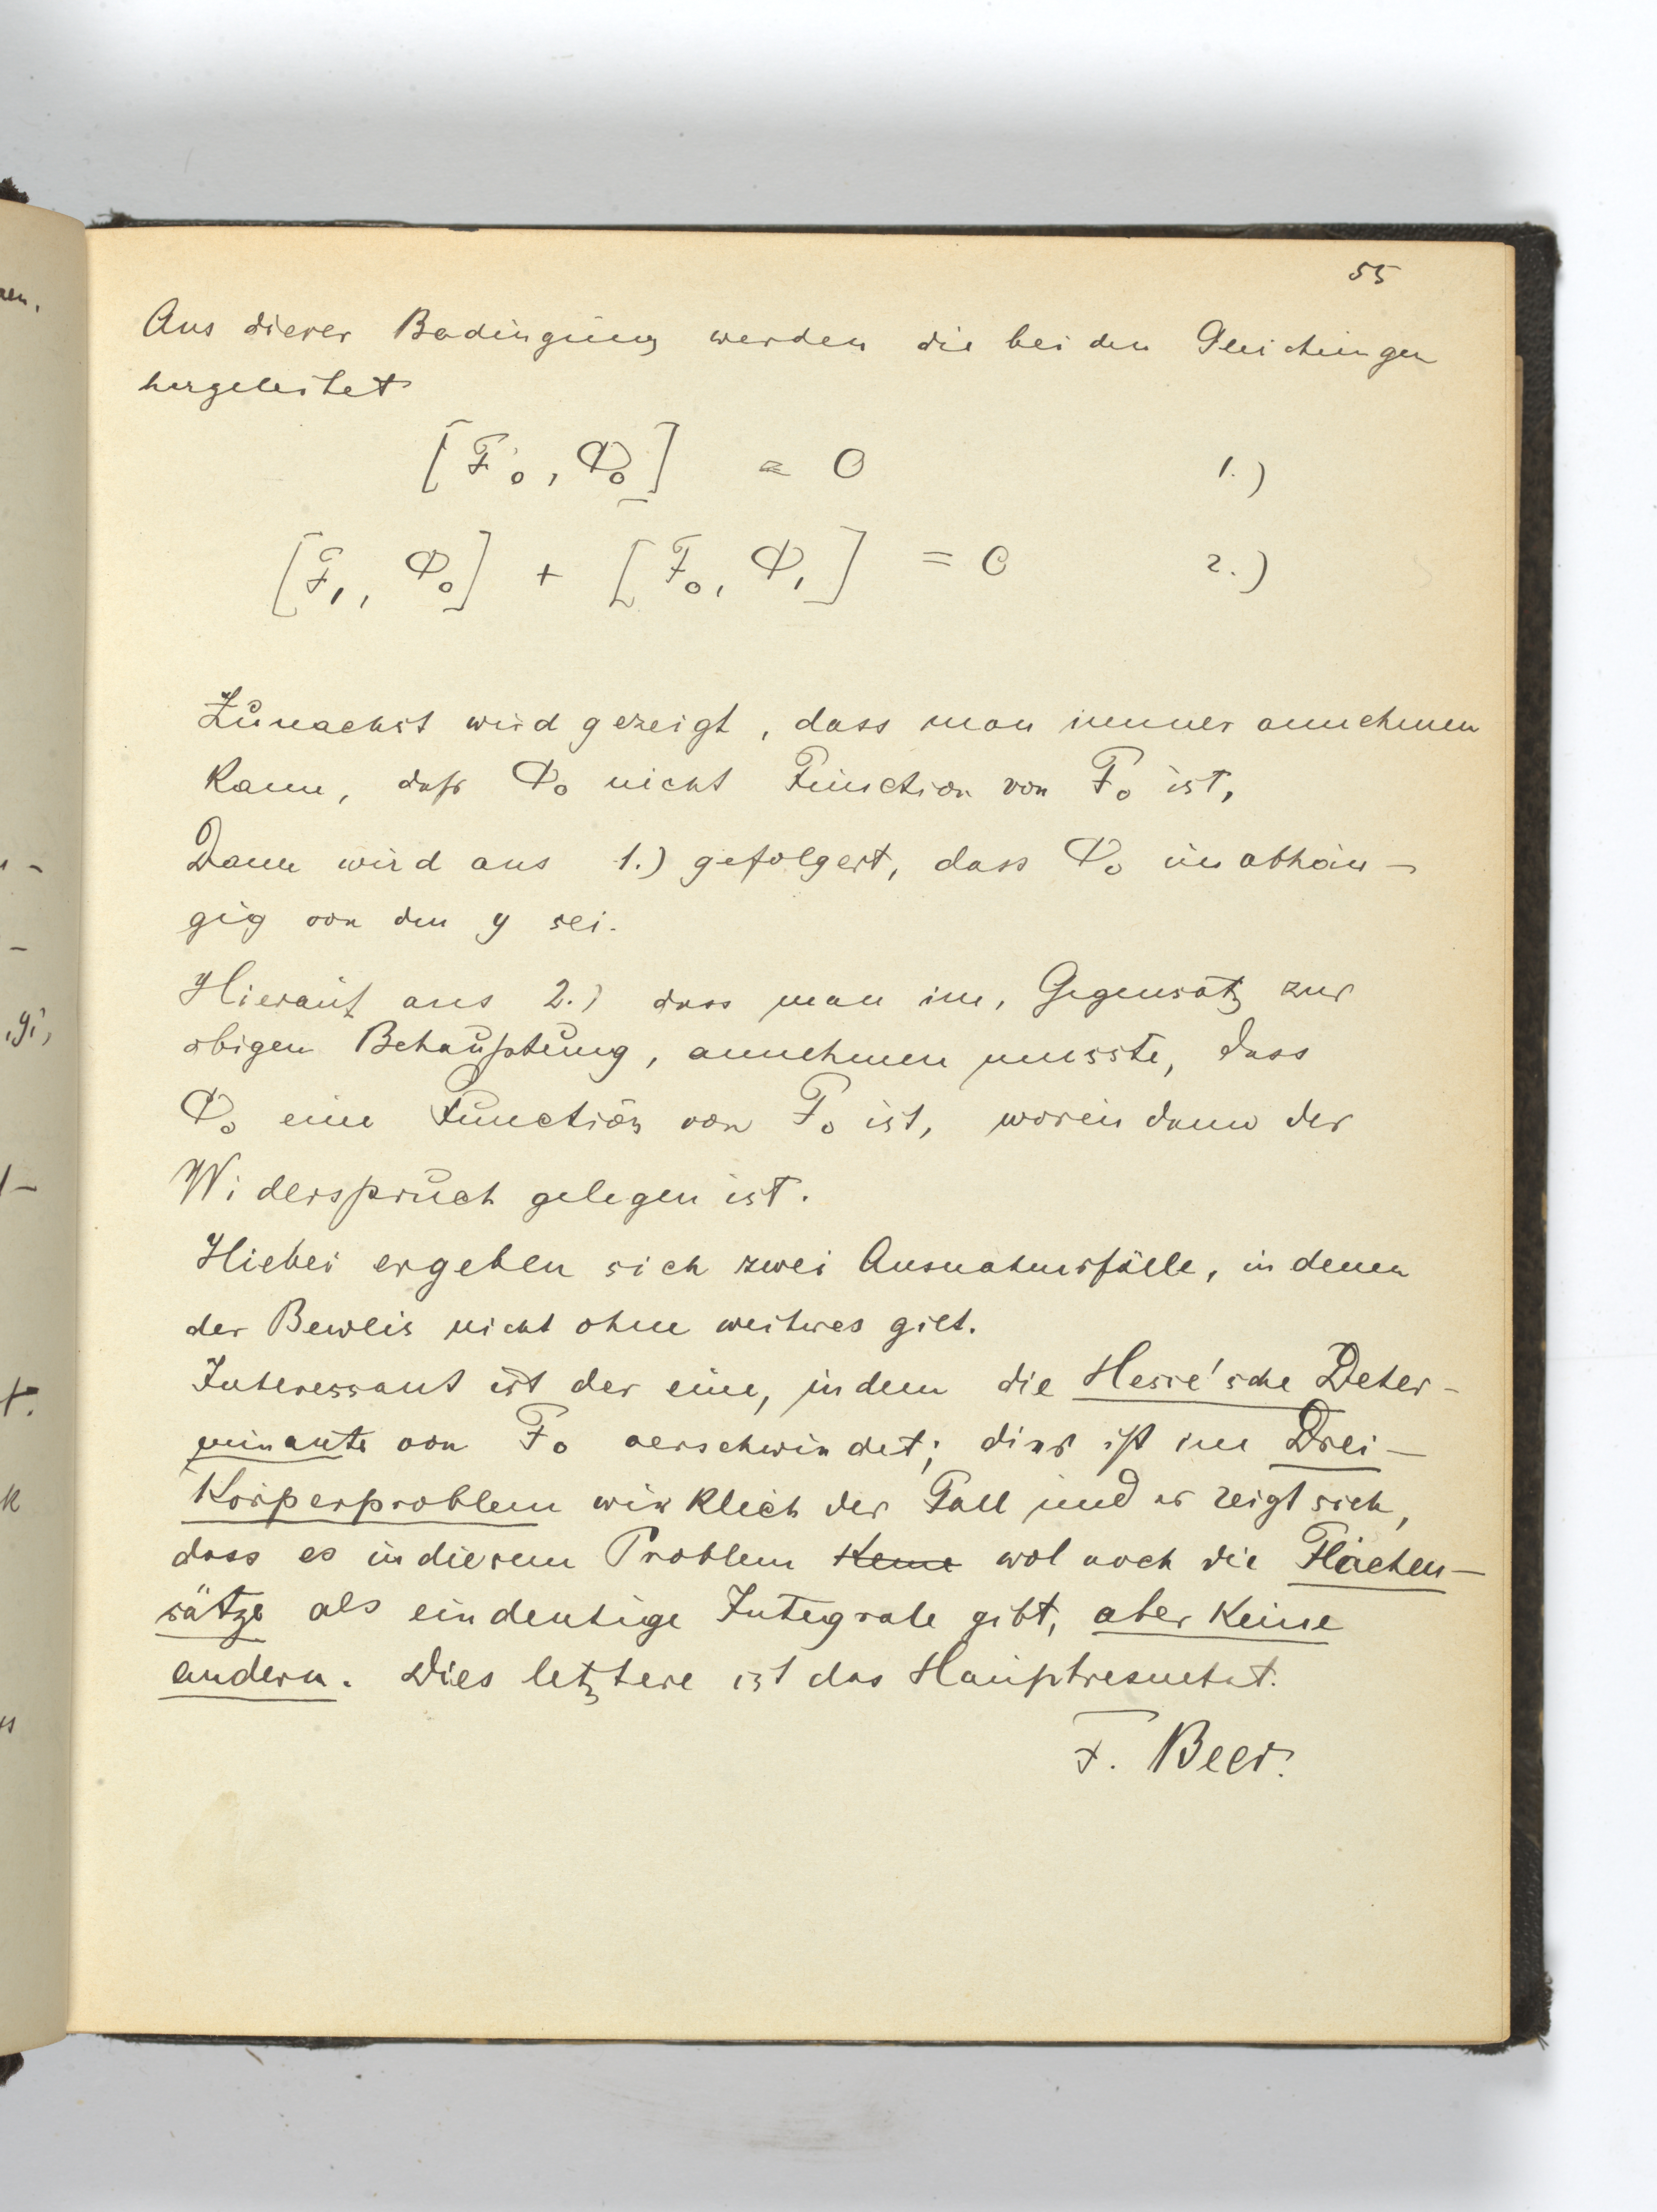 55
Aus dieser Bedingung werden die beiden Gleichungen
hergeleitet
[F₀, Φ₀] = 0 1.)
[F₁, Φ₀] + [F₀, Φ₁] = 0 2.)
Zunaechst wird gezeigt, dass man immer annehmen
kann, daß Φ₀ nicht Function von F₀ ist,
Dann wird aus 1.) gefolgert, dass Φ₀ unabhän-
gig von den y sei.
Hierauf aus 2.) dass man im, Gegensatz zur
obigen Behauptung, annehmen musste, dass
Φ₀ eine Function von F₀ ist, worin dann der
Widerspruch gelegen ist.
Hiebei ergeben sich zwei Ausnahmsfälle, in denen
der Beweis nicht ohne weiteres gilt.
Interessant ist der eine, in dem die Hesse'sche Deter-
minante von F₀ verschwindet; dies ist im Drei-
Körperproblem wirklich der Fall und es zeigt sich,
dass es in diesem Problem keine wol noch die Flächen-
sätze als eindeutige Integrale gibt, aber keine
andern. Dies letztere ist das Hauptresultat.
F. Beer.
nen,
,yi,